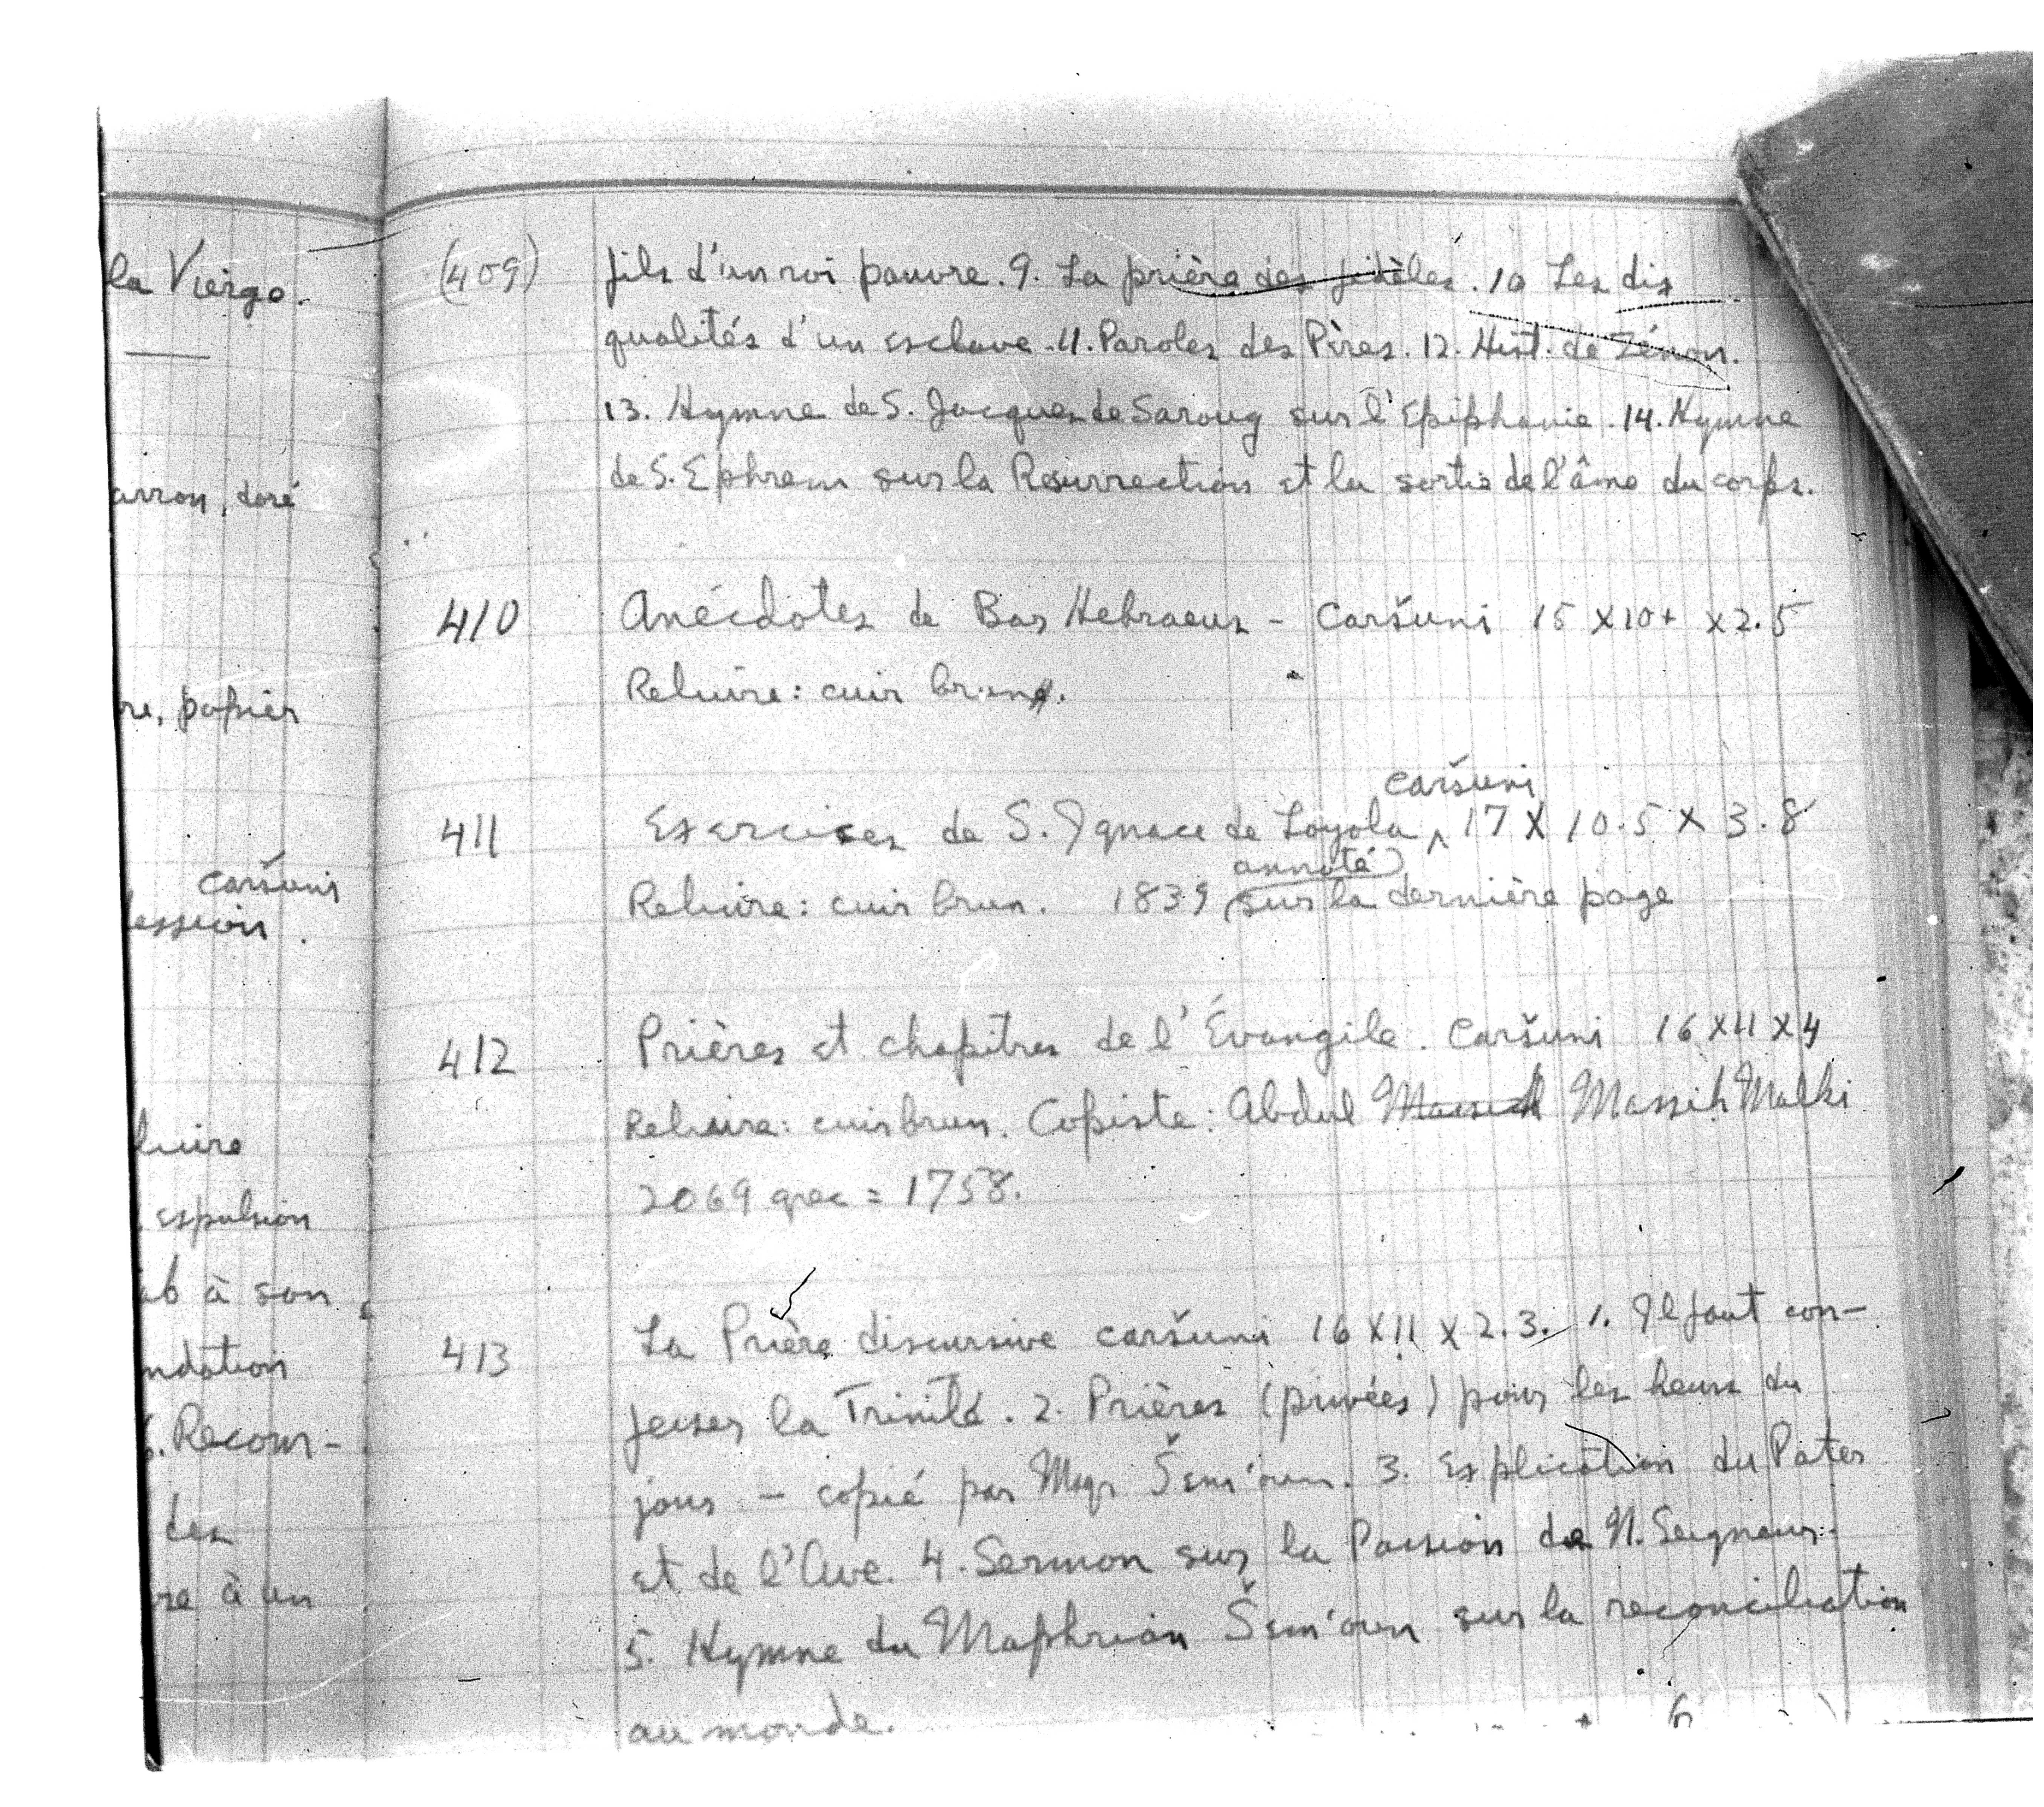 la Vierge.
arron, doré
re, papier
caršuni
ession.
liure
, expulsion
ab à son
ndation
6. Recour-
des
re à un
(409) fils d'un roi pauvre. 9. La prière des fidèles. 10 Les dix
qualités d'un esclave. 11. Paroles des Pères. 12. Hist. de Zénon.
13. Hymne de S. Jacques de Saroug sur l'Epiphanie. 14. Hymne
de S. Ephrem sur la Resurrection et la sortie de l'âme du corps.
410 Anécdotes de Bar Hebraeus - Caršuni 15 x 10+ x 2.5
Reliure: cuir brun.
caršuni
411 Exercices de S. Ignace de Loyola ^ 17 X 10.5 X 3.8
annoté
Reliure: cuir brun. 1839 sur la dernière page
412 Prières et chapitres de l'Évangile. Caršuni 16 x 11 x 4
Reliure: cuir brun. Copiste: Abdul Massih Malki
2069 grec = 1758.
413 La Prière discursive caršuni 16 X 11 X 2.3. 1. Il faut con-
fesser la Trinité. 2. Prières (privées) pour les heurs du
jour - copié par Msgr Šem'oun. 3. Explication du Pater
et de l'Ave. 4. Sermon sur la Passion de N. Seigneur.
5. Hymne du Maphrian Šem'oun sur la reconciliation
au monde.